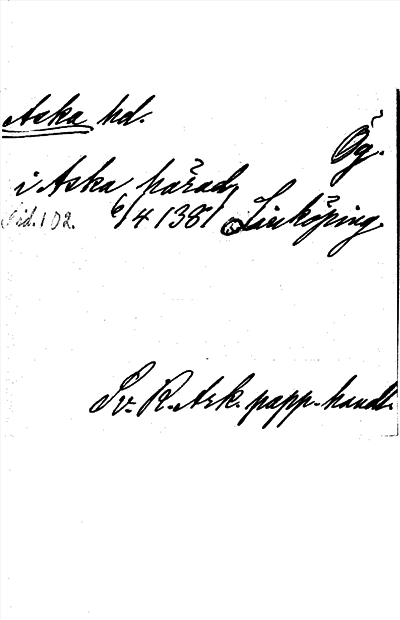 Aska hd.
Ög.
i Aska häradh
Sid. 102. 6/4 1381 Linköping.
Sv. R. Ark. papp. handl.